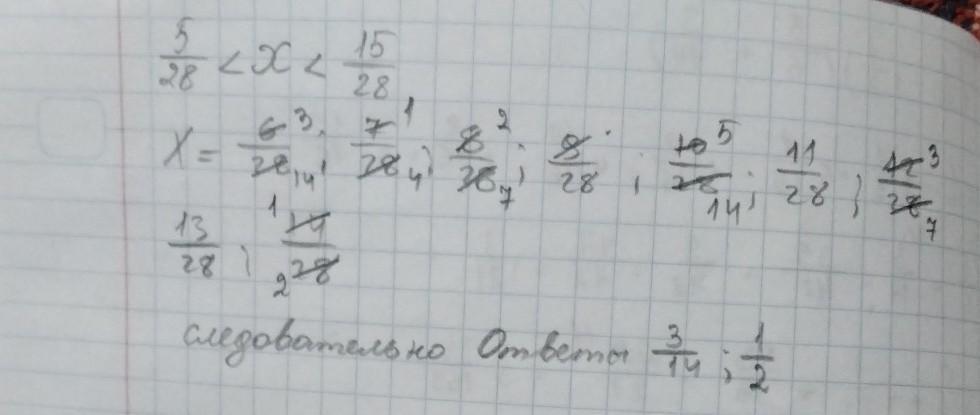 5/28 < X < 15/28
X = 6/28 3/14; 7/28 1/4; 8/28 2/7; 9/28; 10/28 5/14; 11/28; 12/28 3/7
13/28; 14/28 1/2
следовательно Ответы 3/14; 1/2